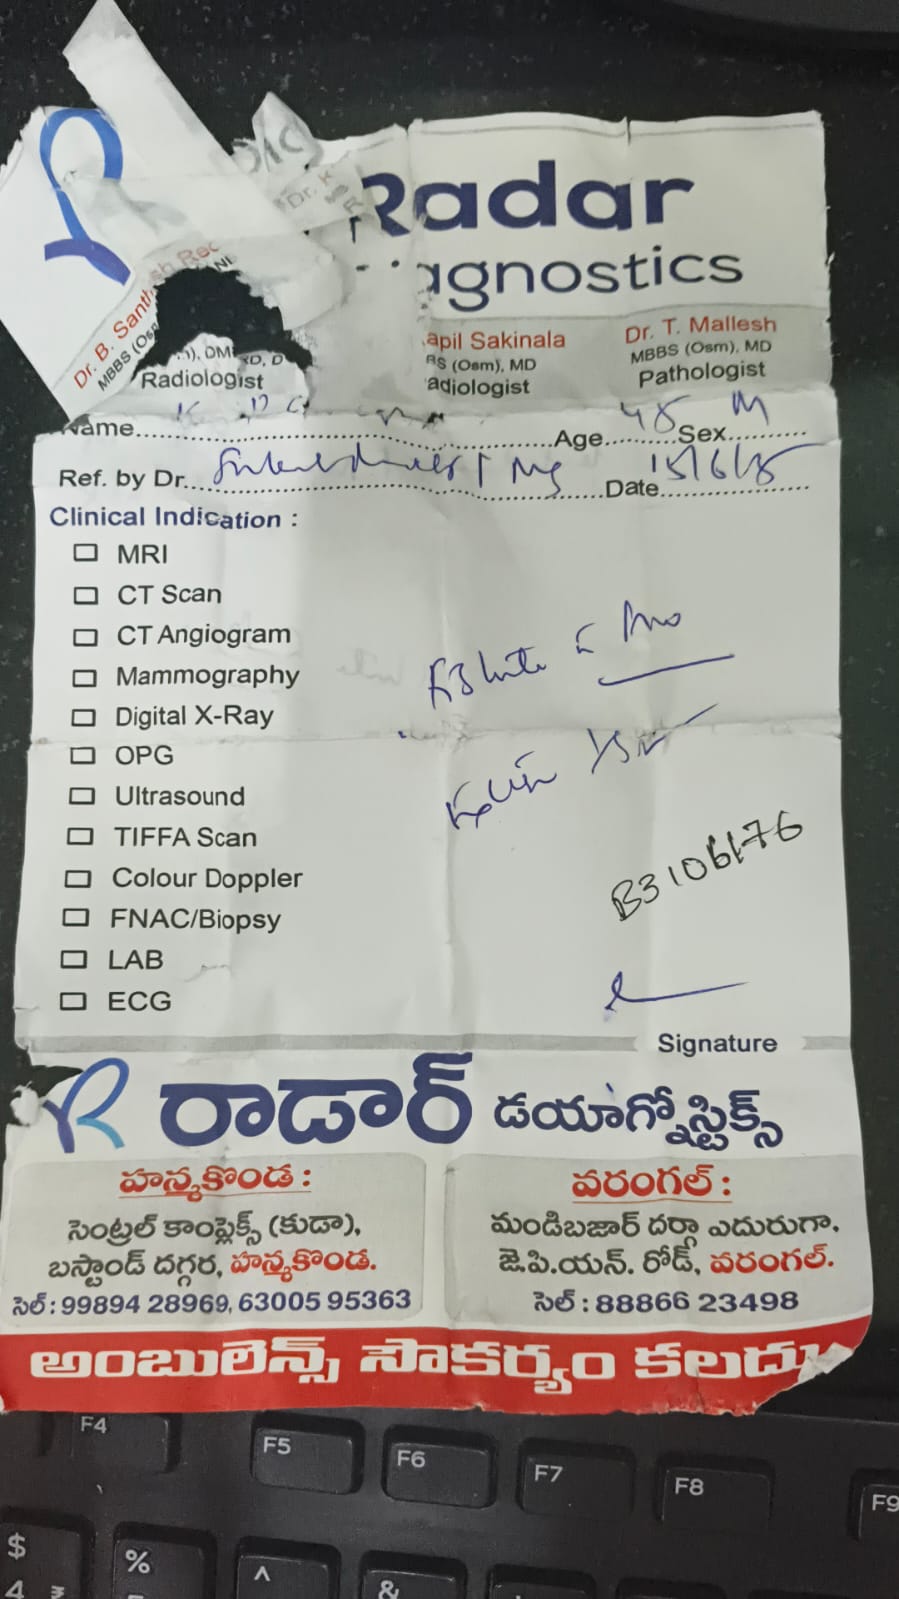 Radar
agnostics
Dr. B. Santh sh Red
MBBS (Osm
), DM RD, D
Radiologist
apil Sakinala
BS (Osm), MD
adiologist
Dr. T. Mallesh
MBBS (Osm), MD
Pathologist
Name Age 48 Sex M
Ref. by Dr. Date 15/6/25
Clinical Indication :
MRI
CT Scan
CT Angiogram
Mammography
Digital X-Ray
OPG
Ultrasound
TIFFA Scan
Colour Doppler
FNAC/Biopsy
LAB
ECG
B3106176
Signature
రాడార్ డయాగ్నోస్టిక్స్
హన్మకొండ :
సెంట్రల్ కాంప్లెక్స్ (కుడా),
బస్టాండ్ దగ్గర, హన్మకొండ.
సెల్ : 99894 28969, 63005 95363
వరంగల్ :
మండిబజార్ దర్గా ఎదురుగా,
జె.పి.యన్. రోడ్, వరంగల్.
సెల్ : 88866 23498
అంబులెన్స్ సౌకర్యం కలదు
F4
F5
F6
F7
F8
F9
$
4 ₹
%
^
&